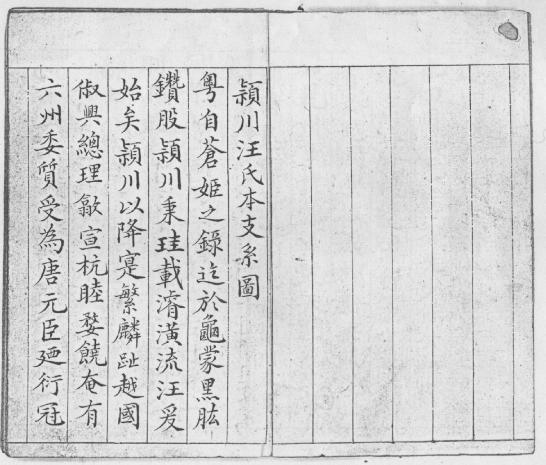 穎川汪氏本支系圖
粵自蒼姬之錄迄於龜蒙黑肱
鑽股穎川秉珪載濬潢流汪爰
始矣穎川以降寔繁麟趾越國
俶興總理歙宣杭睦婺饒奄有
六州委質受為唐元臣廼衍冠